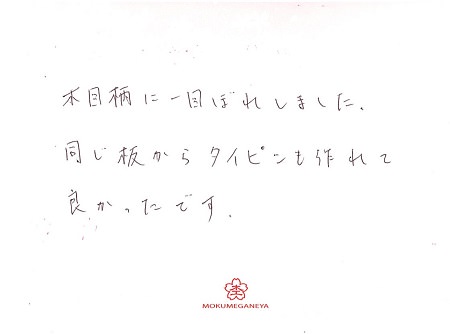 木目柄に一目ぼれしました。
同じ板からタイピンも作れて
良かったです。
MOKUMEGANEYA